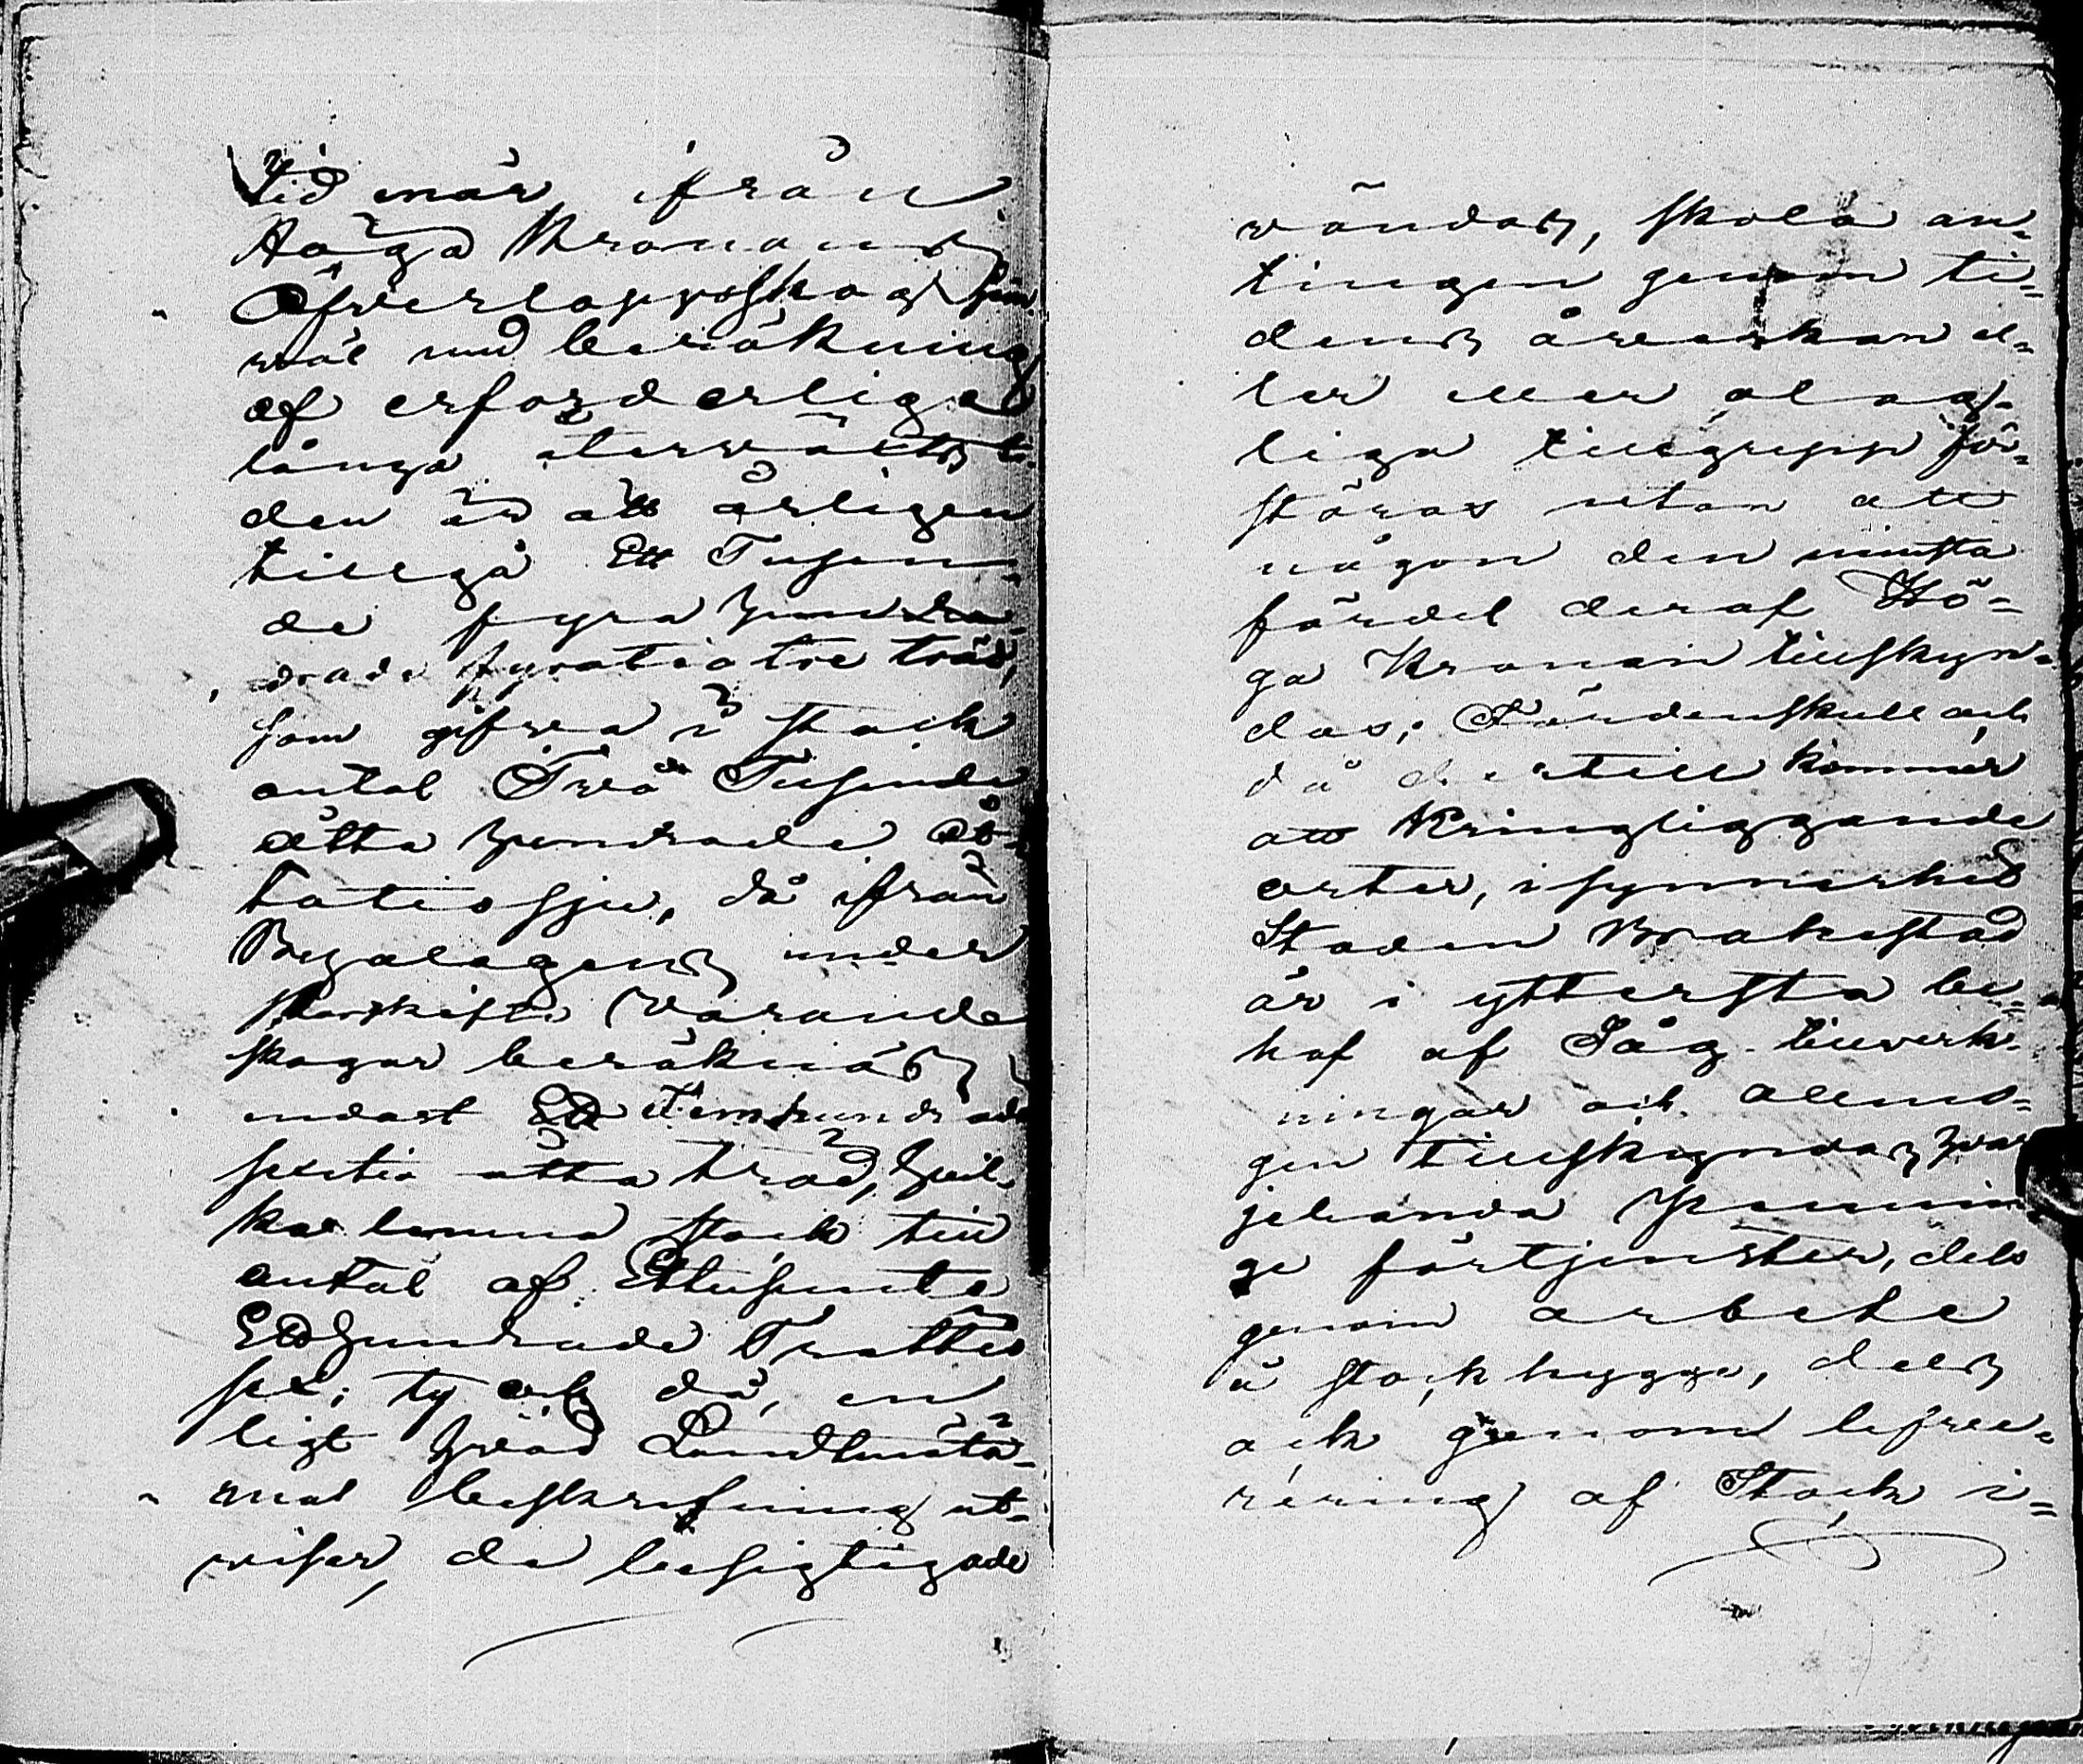 tid när ifrån
Höga Kronans
Öfverloppsskog här
med beräkning
af erforderliga
långa återväxts ti-
den är att årligen
tillgå Ett Tusen-
de fyra hun-
drade fyratiotre träd,
som gifva i stock
antal Två Tusende
åtta hundrade åt-
tatiosju, då ifrån
Byalagens under
Storskifte varande
skogar beräknas
endast Femhundrade
sextio åtta träd, hvil-
ka lemna stock till
antal af Ettusende
Etthundrade Trettio
sex; ty och då, en-
ligt hvad Landtmäta-
rens beskrifning ut-
viser, de besigtigade
vändas, skola an-
tingen genom ti-
dens åverkan el-
ler eller olag-
liga tillgrepp för-
störas utan att
någon den minsta
fördel deraf Hö-
ga Kronan tillskyn-
das; Kändenskull och
då dertill kommer
att Kringliggande
orter, i synnerhed
Staden Brahestad
är i yttersta be-
hof af Såg-tillverk-
ningar och allmo-
gen tillskyndas hvar
jehanda Pennin-
ge förtjenster, dels
genom arbete
å stockhygge, dels
ock genom lefve-
rering af Stock i=